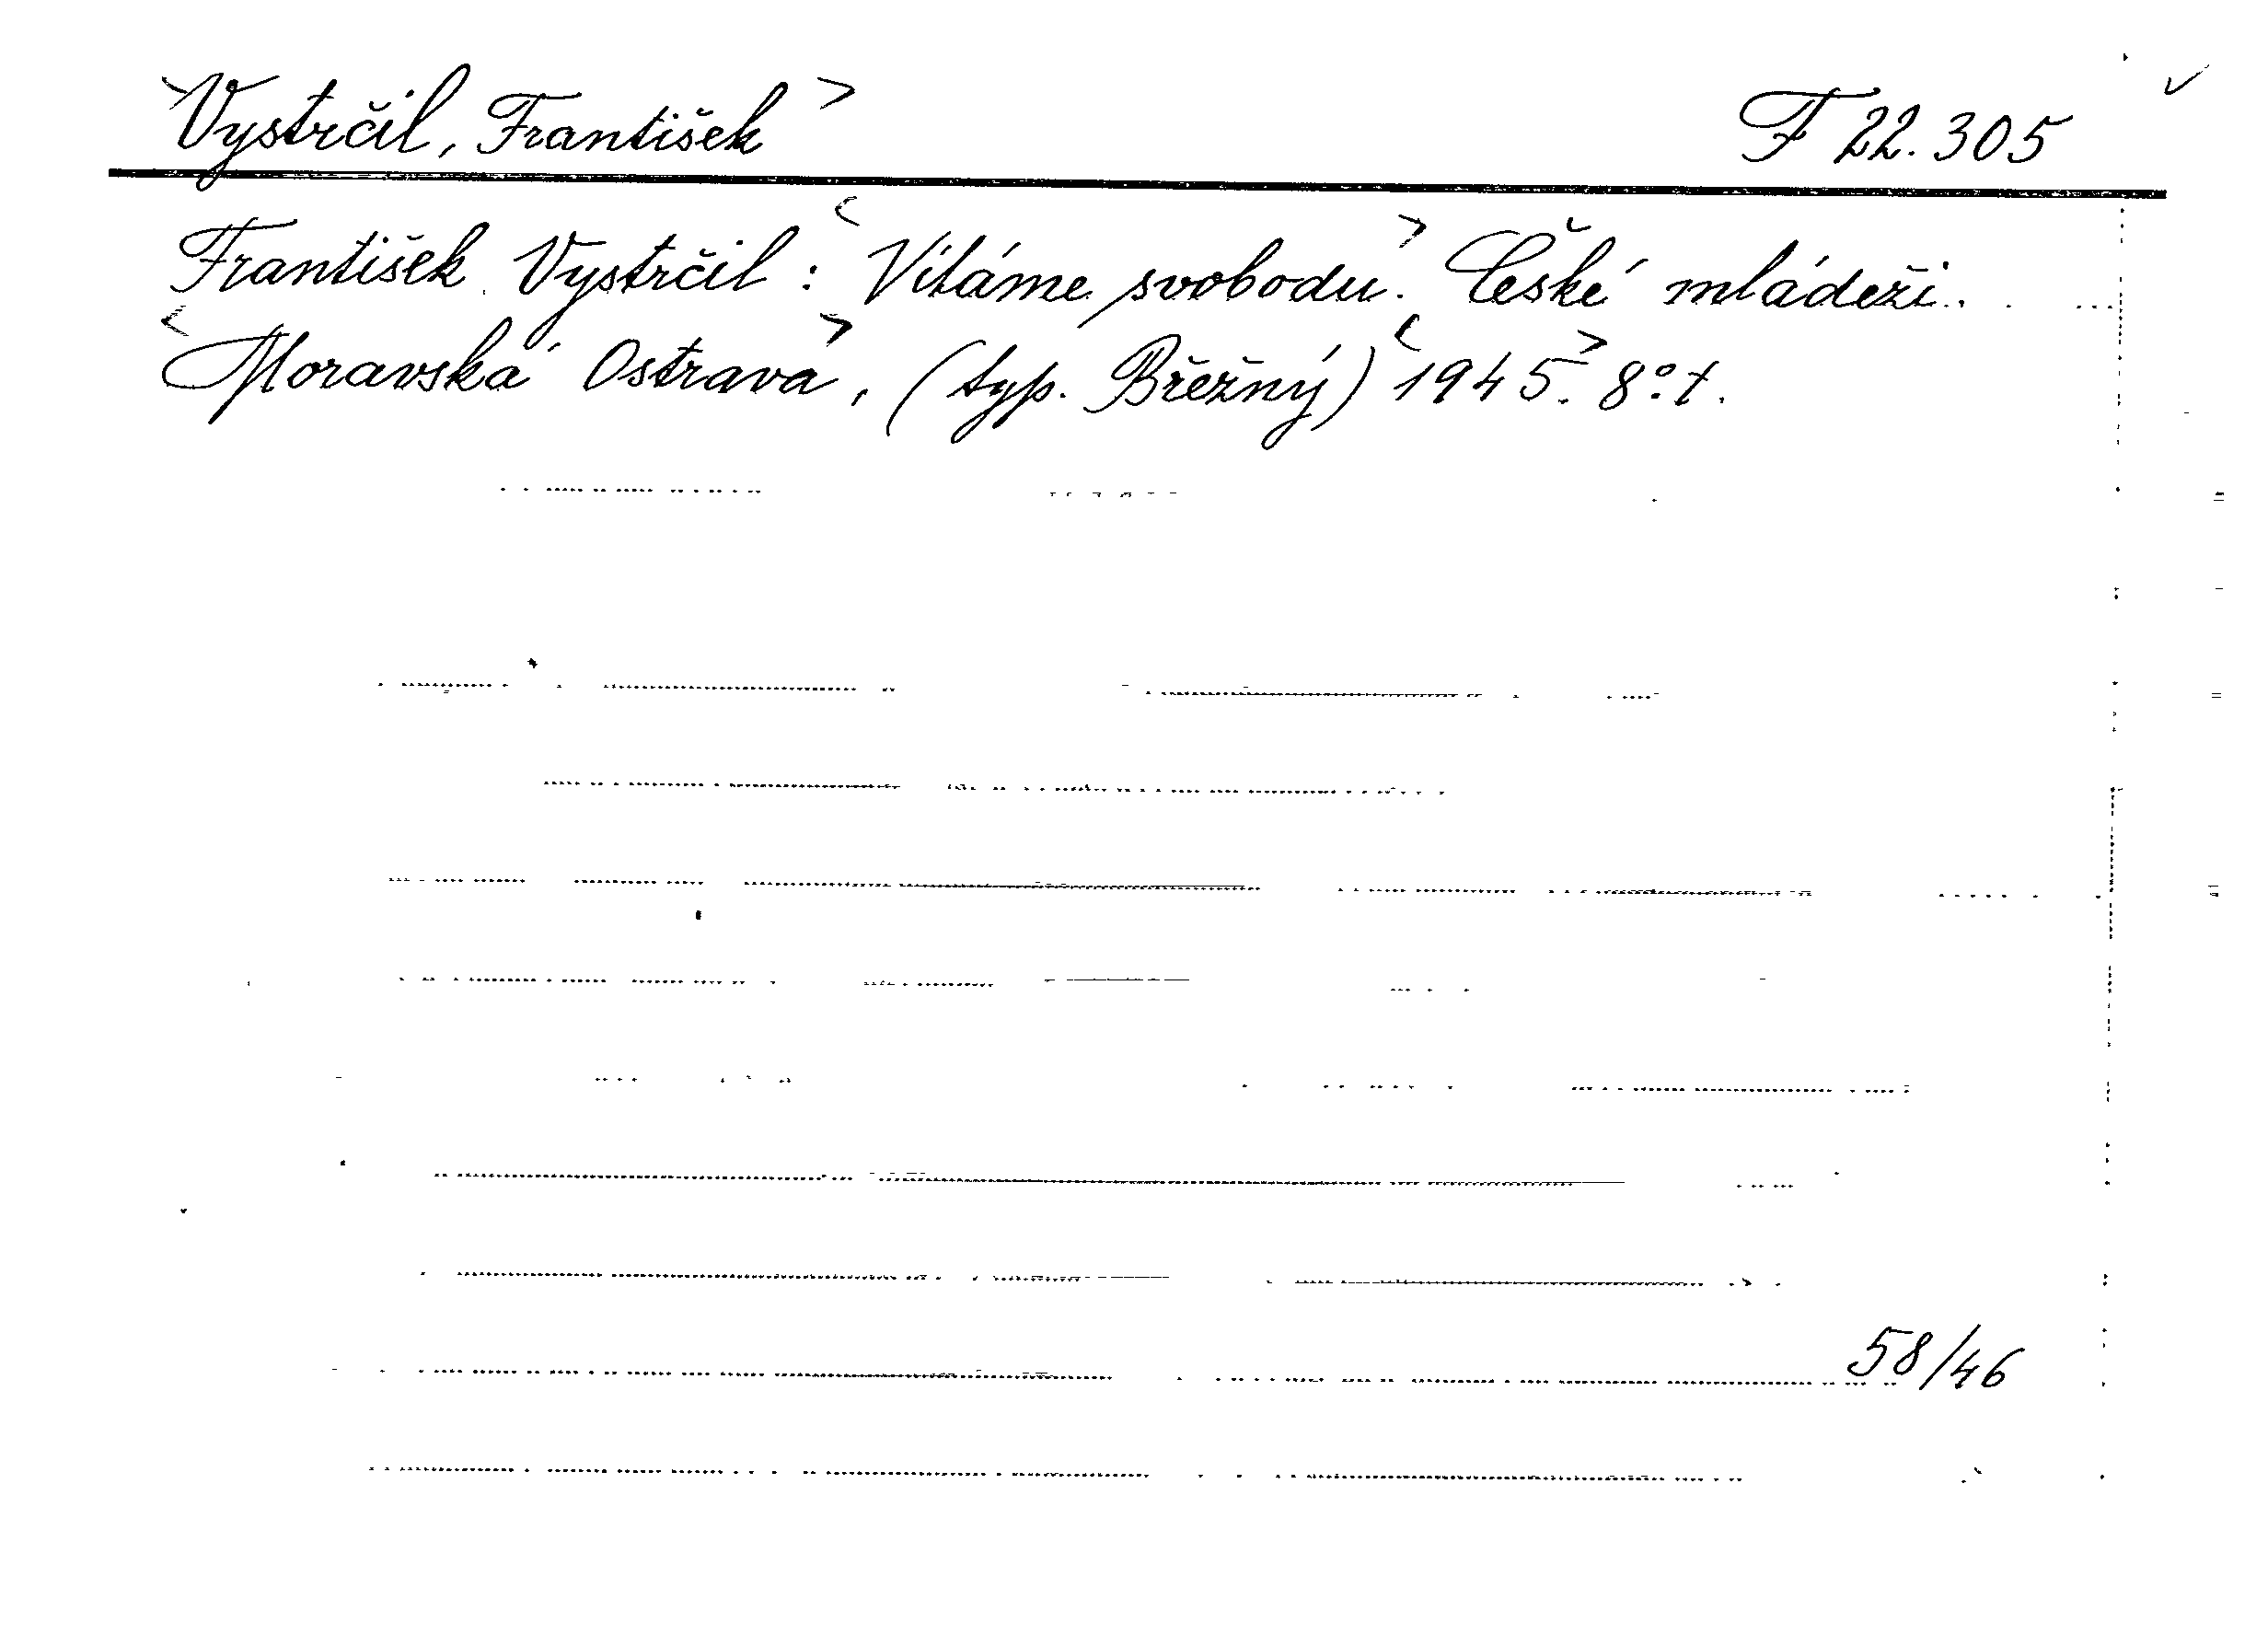 Vystrčil, František F 22.305
František Vystrčil: Vítáme svobodu. České mládeži.
Moravská Ostrava, (typ. Břežný) 1945. 8°. t.
58/46